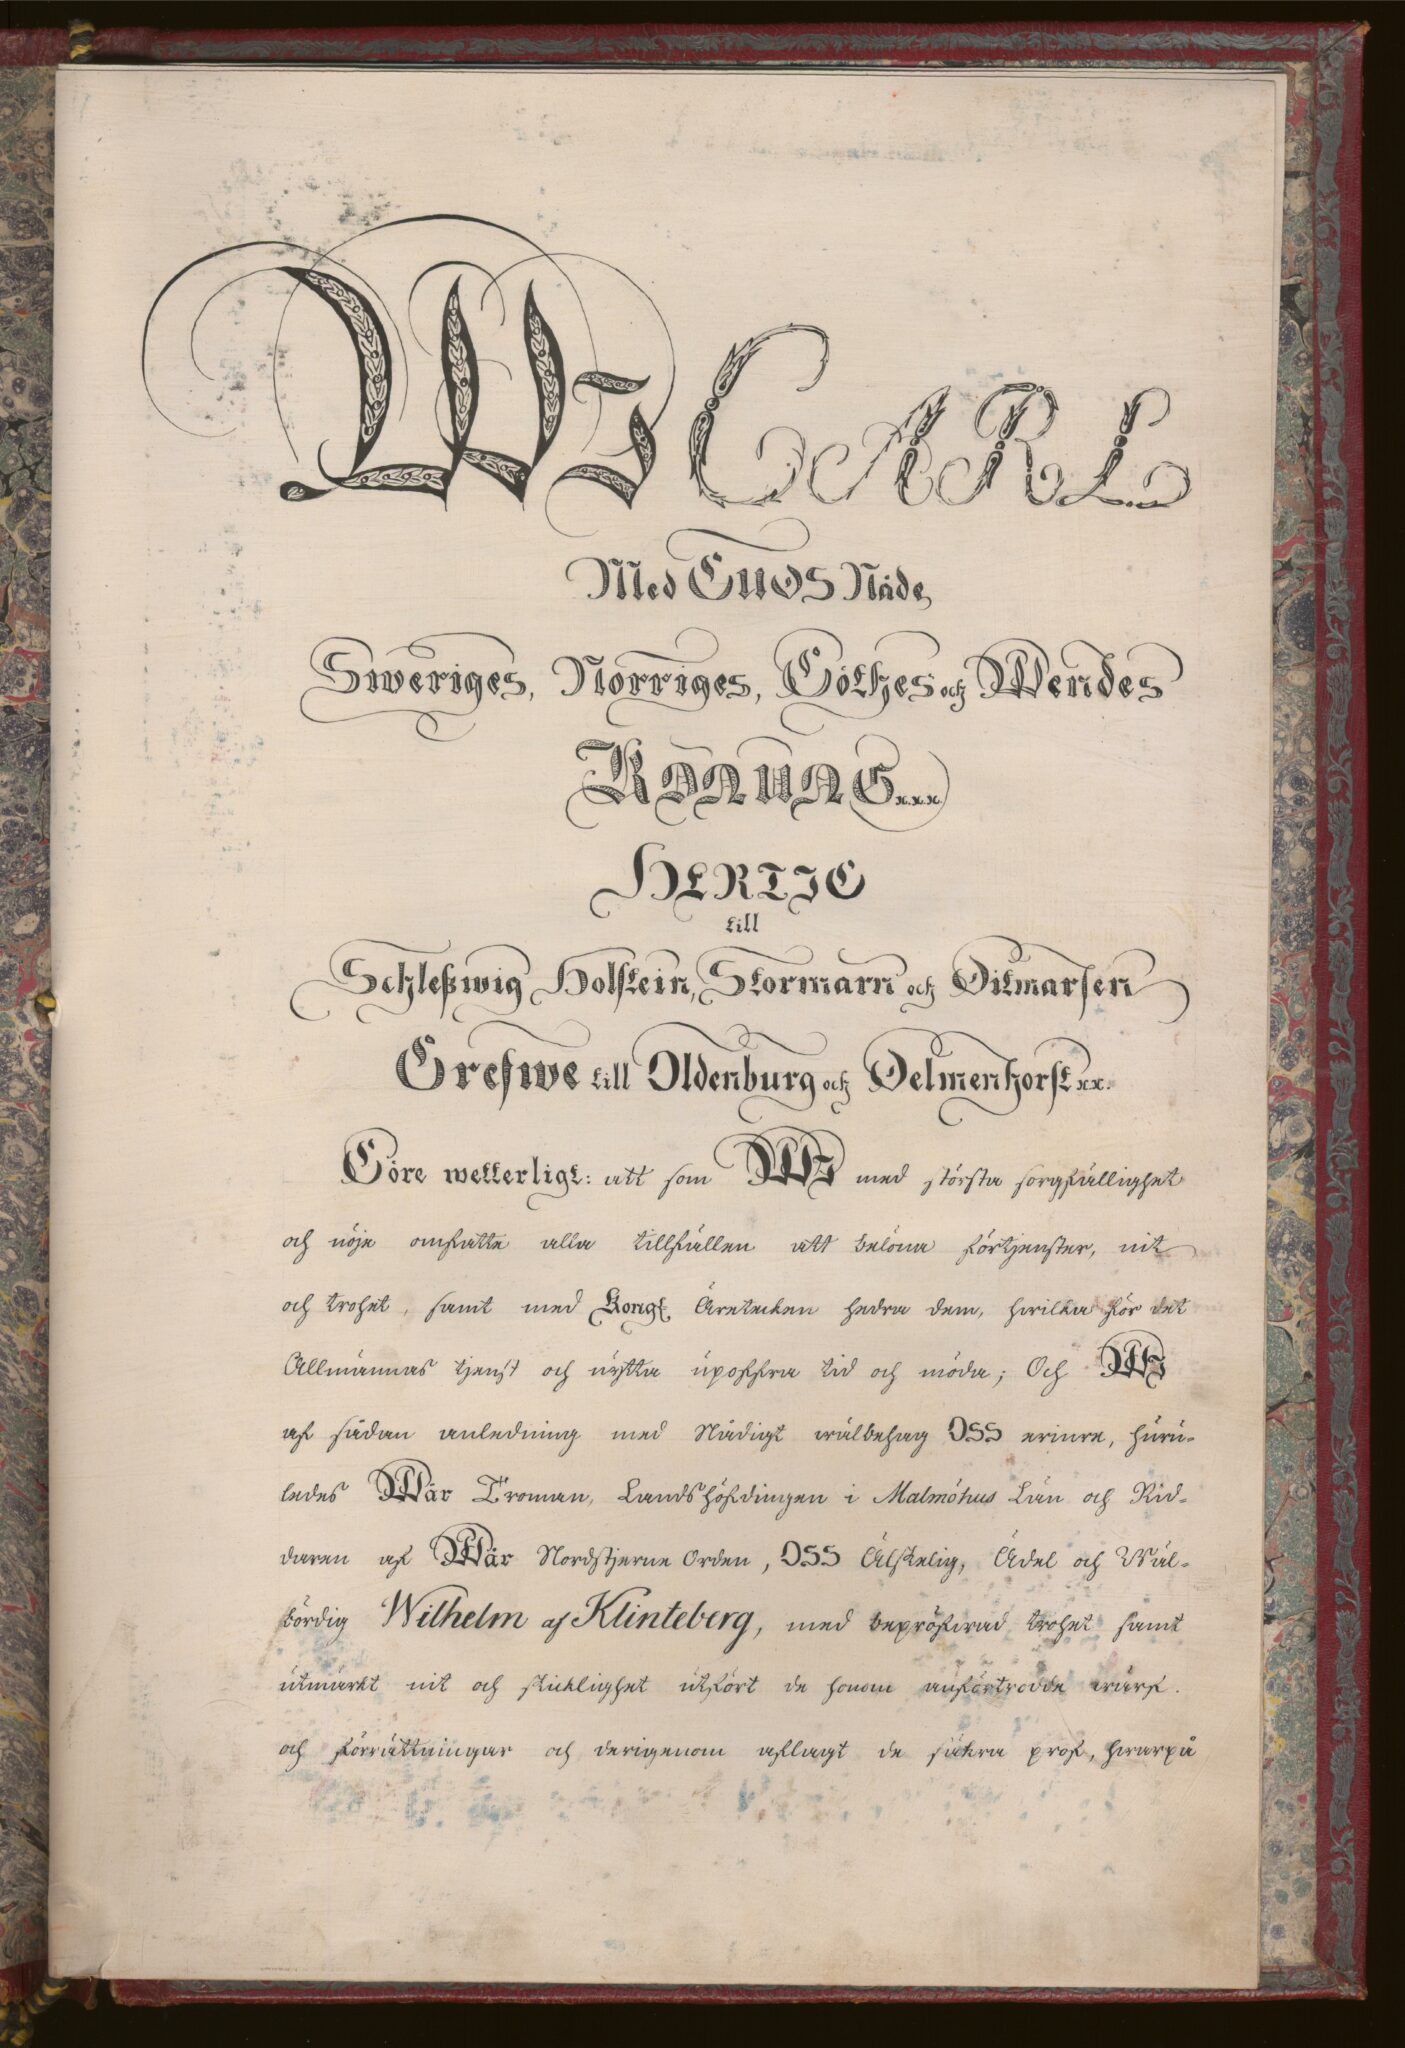 Wi CARL
Med GUDS Nåde,
Sweriges, Norriges, Göthes och Wendes
KONUNG...
HERTIG
till
Schleßwig Holstein, Stormarn och Ditmarsen
Grefwe till Oldenburg och Delmenhorst xx.
Göre wetterligt: att som Wi med största sorgfällighet
och nöje omfatte alla tillfällen att belöna förtjenster, nit
och trohet, samt med Kongl. Äretecken hedra dem, hwilka för det
Allmännas tjenst och nytta upoffra tid och möda; Och Wi
af sådan anledning med Nådigt wälbehag OSS erinre, huru-
ledes Wår Troman, Landshöfdingen i Malmöhus Län och Rid-
daren af Wår Nordstjerne Orden, OSS Älskelig, Ädel och Wäl-
bördig Wilhelm af Klinteberg, med bepröfwad trohet samt
utmärkt nit och skicklighet utfört de honom anförtrodde wärf
och förrättningar och derigenom aflagt de säkra prof, hwarpå